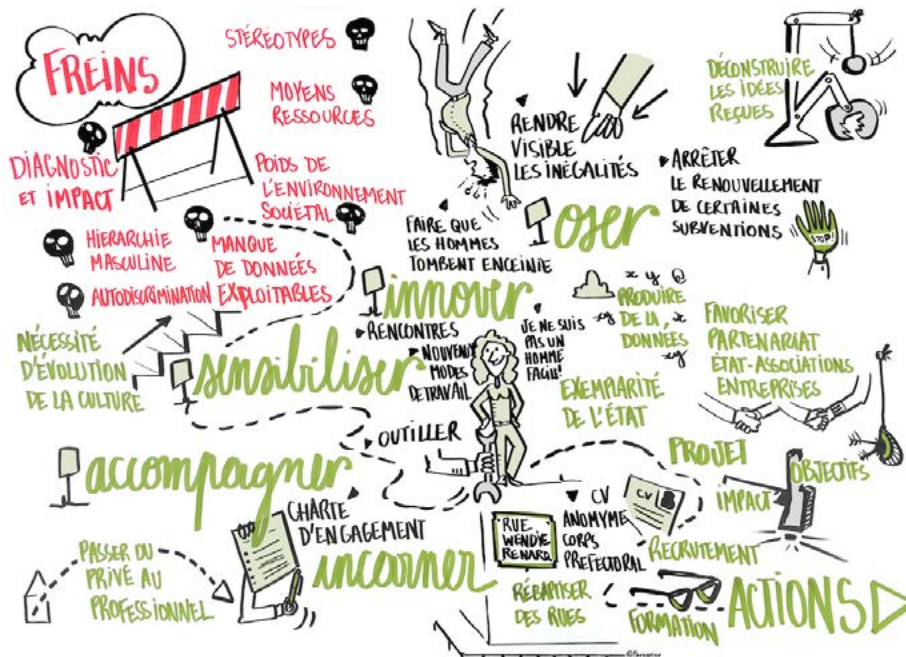 FREINS
STÉRÉOTYPES
MOYENS
RESSOURCES
DIAGNOSTIC
ET IMPACT
POIDS DE
L'ENVIRONNEMENT
SOCIÉTAL
HIERARCHIE
MASCULINE
MANQUE
DE DONNÉES
EXPLOITABLES
AUTODISCRIMINATION
NÉCESSITÉ
D'ÉVOLUTION
DE LA CULTURE
RENDRE
VISIBLE
LES INÉGALITÉS
DÉCONSTRUIRE
LES IDÉES
REÇUES
ARRÊTER
LE RENOUVELLEMENT
DE CERTAINES
SUBVENTIONS
STOP!
oser
FAIRE QUE
LES HOMMES
TOMBENT ENCEINTE
innover
x y @
PRODUIRE
DE LA
DONNÉES
xy
x
xy
RENCONTRES
NOUVEAUX
MODES
DE TRAVAIL
JE NE SUIS
PAS UN
HOMME
FACILE!
sensibiliser
FAVORISER
PARTENARIAT
ÉTAT-ASSOCIATIONS
ENTREPRISES
EXEMPLARITÉ
DE L'ÉTAT
OUTILLER
accompagner
CHARTE
D'ENGAGEMENT
PASSER DU
PRIVÉ AU
PROFESSIONNEL
incarner
RUE
WENDYE
RENARD
RÉBAPTISER
DES RUES
CV
ANOMYME
CORPS
PREFECTORAL
CV
PROJET
IMPACT
OBJECTIFS
RECRUTEMENT
FORMATION
ACTIONS